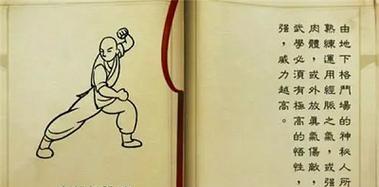 由地下格鬥場的神秘人所
熟練運用經脈之氣，或强
肉體，或外放眞氣傷敵，
武學必須有極高的悟性，
强，威力越高。